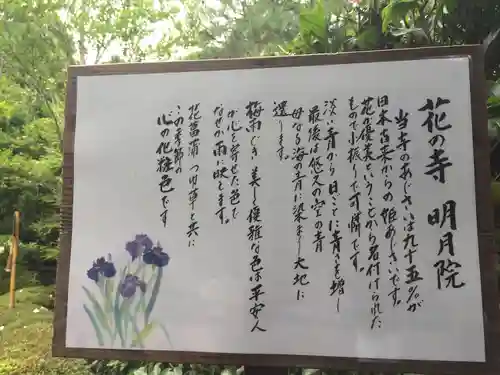 花の寺 明月院
当寺のあじさいは九十五%が
日本古来からの姫あじさいです。
花の優美ということから名付けられた
もので小振りで可憐です。
淡い青から日ごとに青さを増し
最後は悠久の空の青
母なる海の青に染まり大地に
還ります。
梅雨どき 美しく優雅な色は平安人
が心を寄せた色で
なぜか雨に映えます。
花菖蒲 つゆ草と共に
この季節の
心の化粧色です